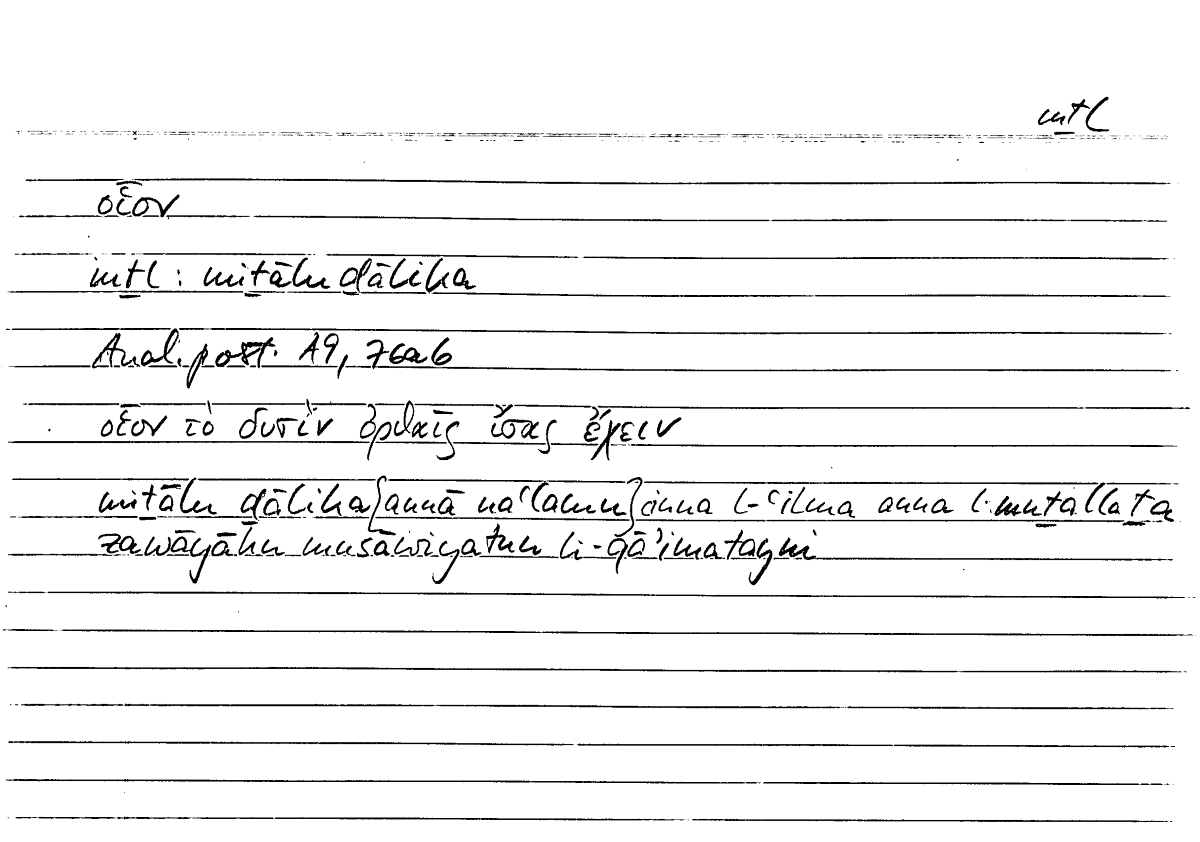 mṯl
οἷον
mṯl : miṯālu ḏālika
Anal. post. A9, 76a6
οἷον τὸ δυσὶν ὀρθαῖς ἴσας ἔχειν
miṯālu ḏālika {annā naʿlamu} inna l-ʿilma anna l-muṯallaṯa
zawāyāhu musāwiyatun li-qāʾimatayni